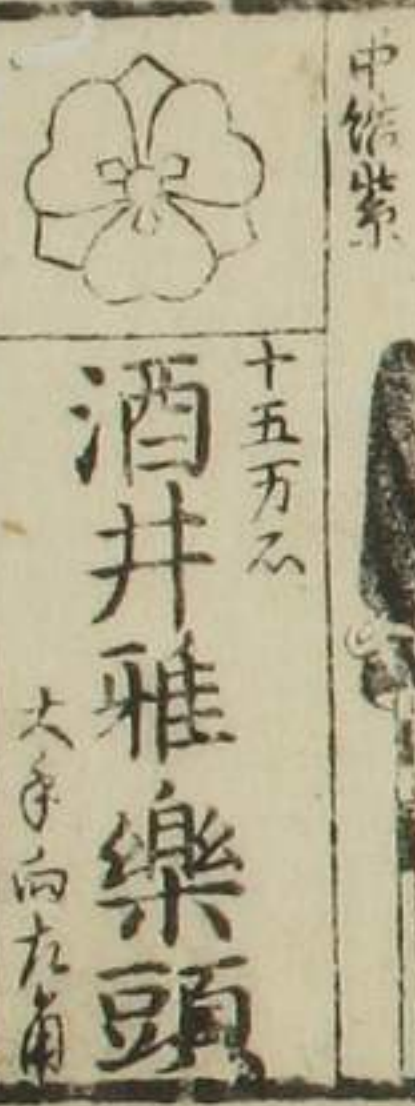 中結紫
十五万石
酒井雅樂頭
大手向左角